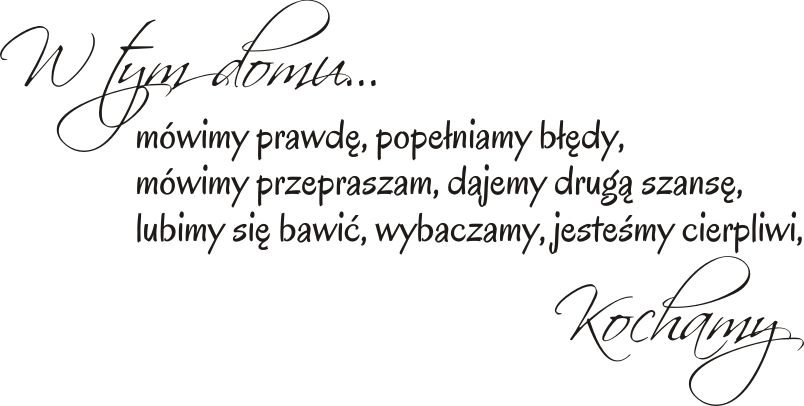 W tym domu...
mówimy prawdę, popełniamy błędy,
mówimy przepraszam, dajemy drugą szansę,
lubimy się bawić, wybaczamy, jesteśmy cierpliwi,
Kochamy